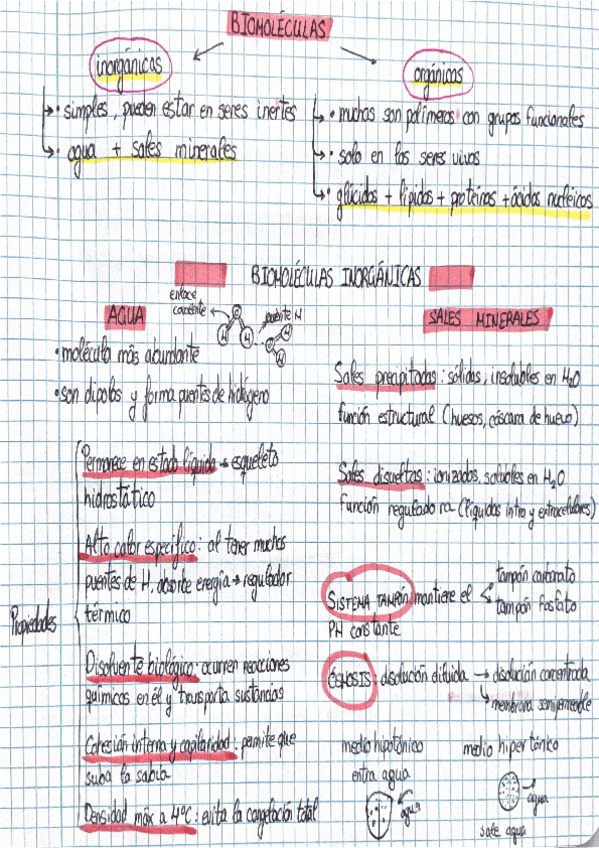 BIOMOLÉCULAS
inorgánicas
• simples, pueden estar en seres inertes
• agua + sales minerales
orgánicas
• muchas son polímeros con grupos funcionales
• solo en los seres vivos
• glúcidos + lípidos + proteínas + ácidos nucleicos
BIOMOLÉCULAS INORGÁNICAS
AGUA
enlace
covalente
puente H
• molécula más abundante
• son dipolos y forma puentes de hidrógeno
Propiedades
Permanece en estado líquido → esqueleto
hidrostático
Alto calor específico: al tener muchos
puentes de H, absorbe energía → regulador
térmico
Disolvente biológico: ocurren reacciones
químicas en él y transporta sustancias
Cohesión interna y capilaridad: permite que
suba la sabia
Densidad máx a 4ºC: evita la congelación total
SALES MINERALES
Sales precipitadas: sólidas, insolubles en H2O
función estructural (huesos, cáscara de huevo)
Sales disueltas: ionizadas, solubles en H2O
función reguladora (líquidos intra y extracelulares)
SISTEMA TAMPÓN: mantiene el
PH constante
tampón carbonato
tampón fosfato
ÓSMOSIS: disolución diluida → disolución concentrada
→ membrana semipermeable
medio hipotónico
entra agua
agua
medio hipertónico
agua
sale agua